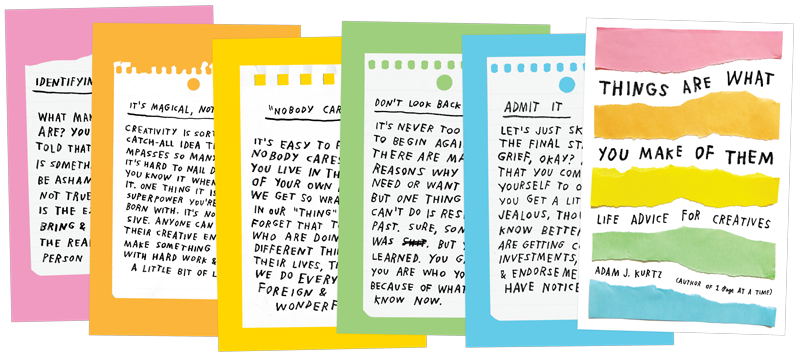 IDENTIFYING
WHAT MAK
ARE? YOU
TOLD THAT
IS SOMETH
BE ASHAM
NOT TRUE
IS THE E
BRING &
THE REA
PERSON
IT'S MAGICAL, NOT
CREATIVITY IS SORT
CATCH-ALL IDEA T
MPASSES SO MANY
IT'S HARD TO NAIL D
YOU KNOW IT WHEN
IT. ONE THING IT IS
SUPERPOWER YOU'RE
BORN WITH. IT'S NO
SIVE. ANYONE CAN
THEIR CREATIVE EN
MAKE SOMETHING
WITH HARD WORK &
A LITTLE BIT OF L
"NOBODY CAR
IT'S EASY TO F
NOBODY CARES
YOU LIVE IN TH
OF YOUR OWN
WE GET SO WRA
IN OUR "THING"
FORGET THAT T
WHO ARE DOIN
DIFFERENT THIN
THEIR LIVES, TH
WE DO EVERY
FOREIGN &
WONDERF
DON'T LOOK BACK
IT'S NEVER TOO
TO BEGIN AGAI
THERE ARE MA
REASONS WHY
NEED OR WANT
BUT ONE THING
CAN'T DO IS RES
PAST. SURE, SOM
WAS SHIT. BUT Y
LEARNED. YOU G
YOU ARE WHO Y
BECAUSE OF WHAT
KNOW NOW.
ADMIT IT
LET'S JUST SK
THE FINAL STA
GRIEF, OKAY?
THAT YOU COM
YOURSELF TO O
YOU GET A LIT
JEALOUS, THOU
KNOW BETTER
ARE GETTING CO
INVESTMENTS,
& ENDORSEME
HAVE NOTICE
THINGS ARE WHAT
YOU MAKE OF THEM
LIFE ADVICE FOR CREATIVES
ADAM J. KURTZ
(AUTHOR OF 1 PAGE AT A TIME)